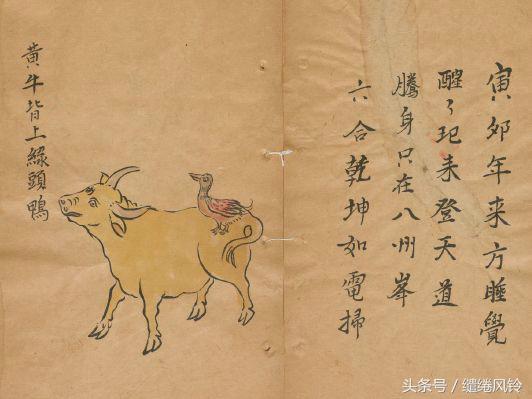 寅夘年来方睡覺
醒了来登天道
騰身只在八州峯
六合乾坤如電掃
黄牛背上緑頭鴨
头条号 / 缱绻风铃